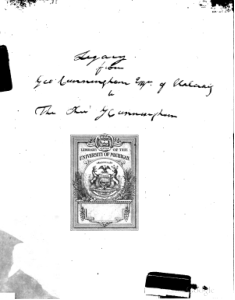 Legacy
from
Geo Cunningham Esqr. of
to
The Cunningham
LIBRARY OF THE
UNIVERSITY OF MICHIGAN